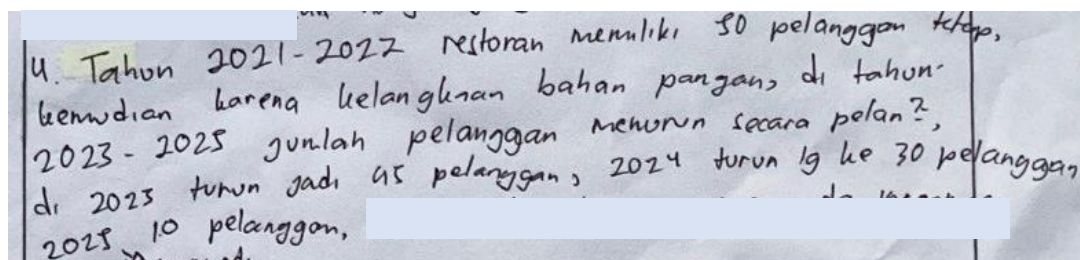 4. Tahun 2021-2022 restoran memiliki 50 pelanggan tetap,
kemudian karena kelangkaan bahan pangan, di tahun
2023 - 2025 jumlah pelanggan menurun secara pelan2,
di 2023 turun jadi 45 pelanggan, 2024 turun lg ke 30 pelanggan,
2025 10 pelanggan,